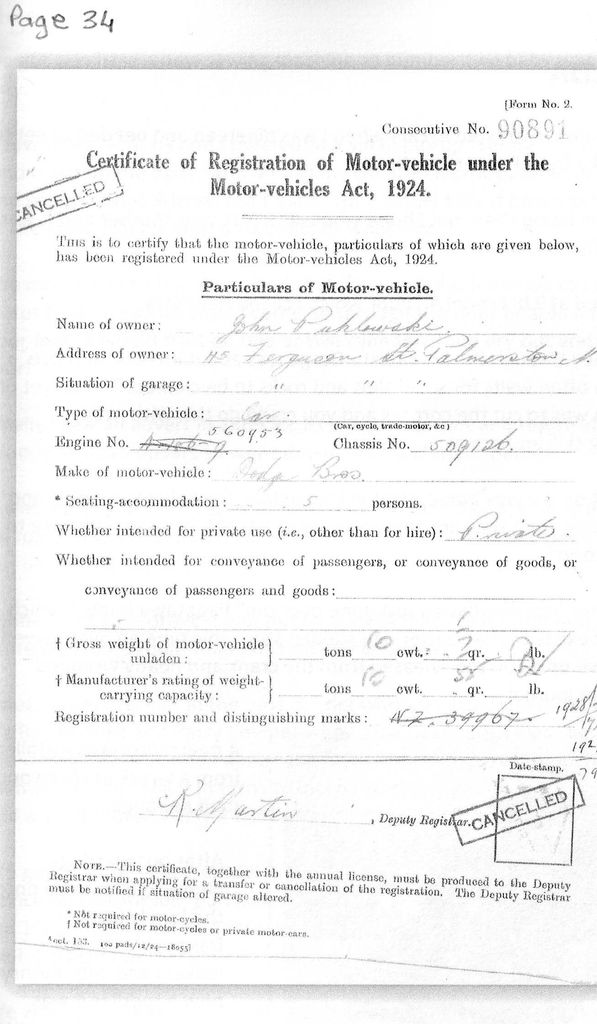 Page 34
[Form No. 2.
Consecutive No. 90891
Certificate of Registration of Motor-vehicle under the
Motor-vehicles Act, 1924.
CANCELLED
This is to certify that the motor-vehicle, particulars of which are given below,
has been registered under the Motor-vehicles Act, 1924.
Particulars of Motor-vehicle.
Name of owner: John Puklowski
Address of owner: 45 Ferguson St. Palmerston N.
Situation of garage: " " "
Type of motor-vehicle: Car.
(Car, cycle, trade-motor, &c)
Engine No. 560953 Chassis No. 509126.
Make of motor-vehicle: Dodge Bros.
* Seating-accommodation: 5 persons.
Whether intended for private use (i.e., other than for hire): Private.
Whether intended for conveyance of passengers, or conveyance of goods, or
conveyance of passengers and goods:
† Gross weight of motor-vehicle unladen: tons cwt. qr. lb.
† Manufacturer's rating of weight-carrying capacity: tons cwt. qr. lb.
Registration number and distinguishing marks: NZ. 39967.
1928/
192
Date-stamp.
79
R. Martin, Deputy Registrar.
CANCELLED
NOTE.—This certificate, together with the annual license, must be produced to the Deputy
Registrar when applying for a transfer or cancellation of the registration. The Deputy Registrar
must be notified if situation of garage altered.
* Not required for motor-cycles.
† Not required for motor-cycles or private motor-cars.
100 pads/12/24—18055]